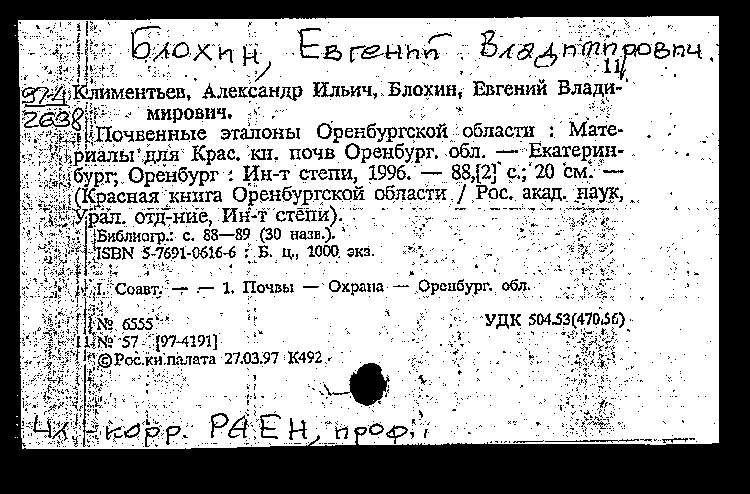 Блохин, Евгений Владимирович.
11
97-4
2638
Климентьев, Александр Ильич, Блохин, Евгений Влади-
мирович.
Почвенные эталоны Оренбургской области : Мате-
риалы для Крас. кн. почв Оренбург. обл. — Екатерин-
бург; Оренбург : Ин-т степи, 1996. — 88,[2] с.; 20 см. —
(Красная книга Оренбургской области / Рос. акад. наук,
Урал. отд-ние, Ин-т степи).
Библиогр.: с. 88—89 (30 назв.).
ISBN 5-7691-0616-6 : Б. ц., 1000 экз.
I. Соавт. — . — 1. Почвы — Охрана — Оренбург. обл.
№ 6555 УДК 504.53(470.56)
№ 57 [97-4191]
© Рос.кн.палата 27.03.97 К492
Чл-корр. РАЕН, проф.